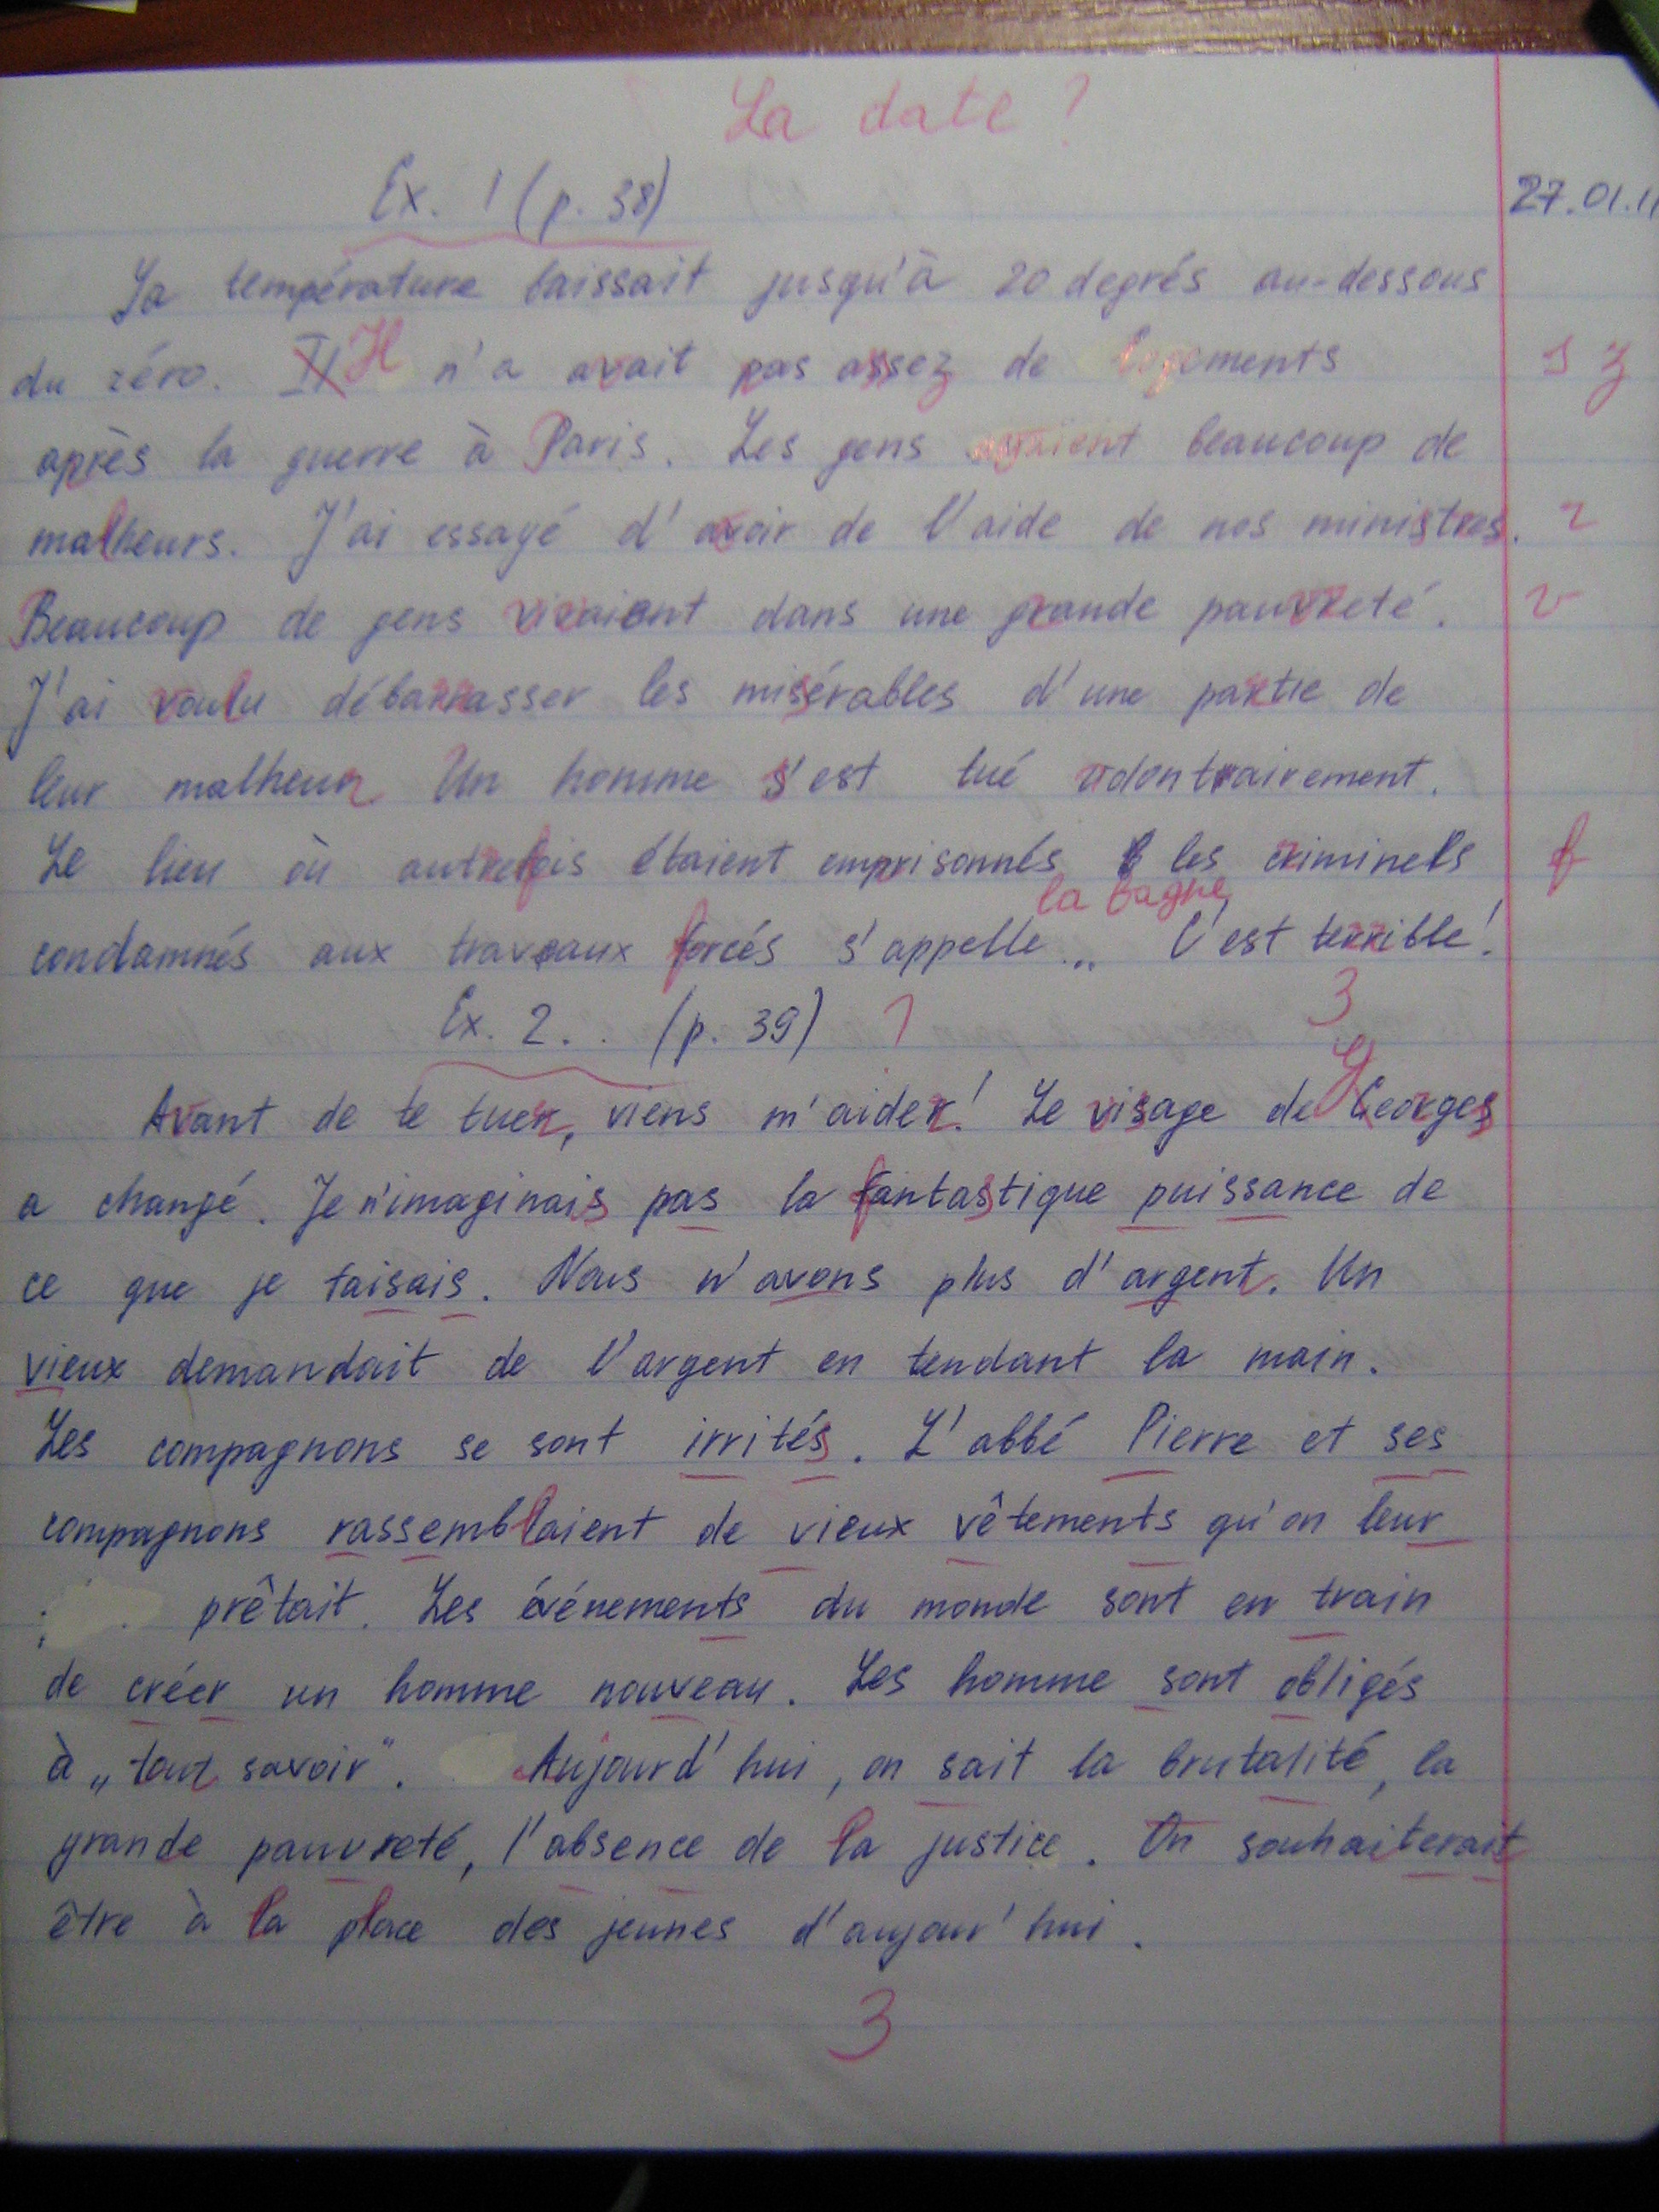 La date ?
Ex. 1 (p. 38)
27.01.11
La température baissait jusqu'à 20 degrés au-dessous
du zéro. Il n'a avait pas assez de logements
s z
après la guerre à Paris. Les gens avaient beaucoup de
malheurs. J'ai essayé d'avoir de l'aide de nos ministres.
r
Beaucoup de gens vivaient dans une grande pauvreté.
v
J'ai voulu débarrasser les misérables d'une partie de
leur malheur. Un homme s'est tué
Le lieu où autrefois étaient emprisonnés les criminels
f
la bagne
condamnés aux traveaux forcés s'appelle... C'est terrible!
3
Ex. 2.. (p. 39) ?
Avant de te tuer, viens m'aider! Le visage de Georges
a changé. Je n'imaginais pas la fantastique puissance de
ce que je faisais. Nous n'avons plus d'argent. Un
vieux demandait de l'argent en tendant la main.
Les compagnons se sont irrités. L'abbé Pierre et ses
compagnons rassemblaient de vieux vêtements qu'on leur
prêtait. Les événements du monde sont en train
de créer un homme nouveau. Les homme sont obligés
à „tout savoir". Aujourd'hui, on sait la brutalité, la
grande pauvreté, l'absence de la justice. On souhaiterait
être à la place des jeunes d'aujour'hui.
3